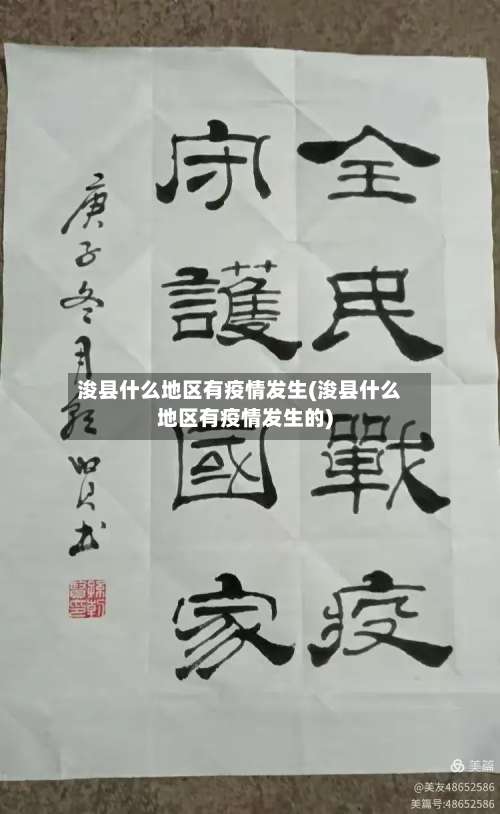 全民戰疫
守護國家
庚子冬月
賢书
浚县什么地区有疫情发生(浚县什么
地区有疫情发生的)
美篇
@美友48652586
美篇号:48652586